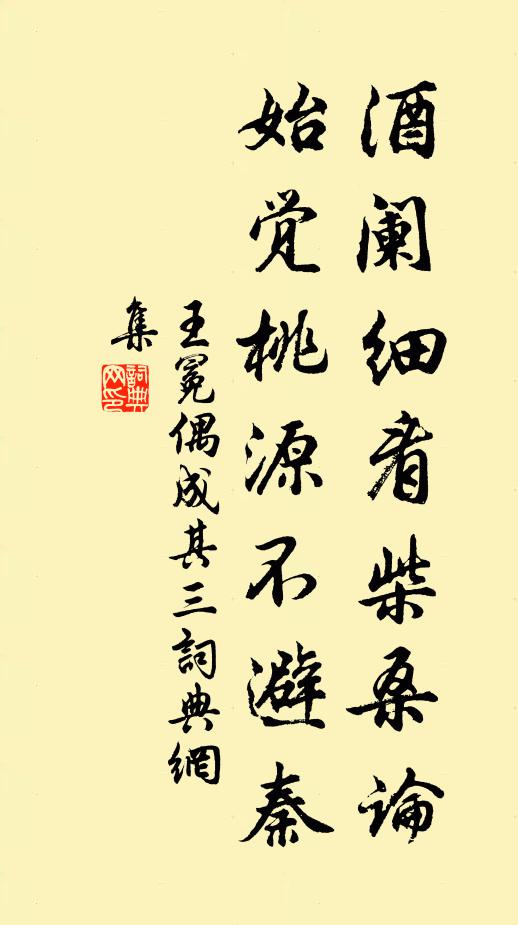 酒阑细看柴桑论
始觉桃源不避秦
王冕偶成其三詞典網
集
詞典
网印